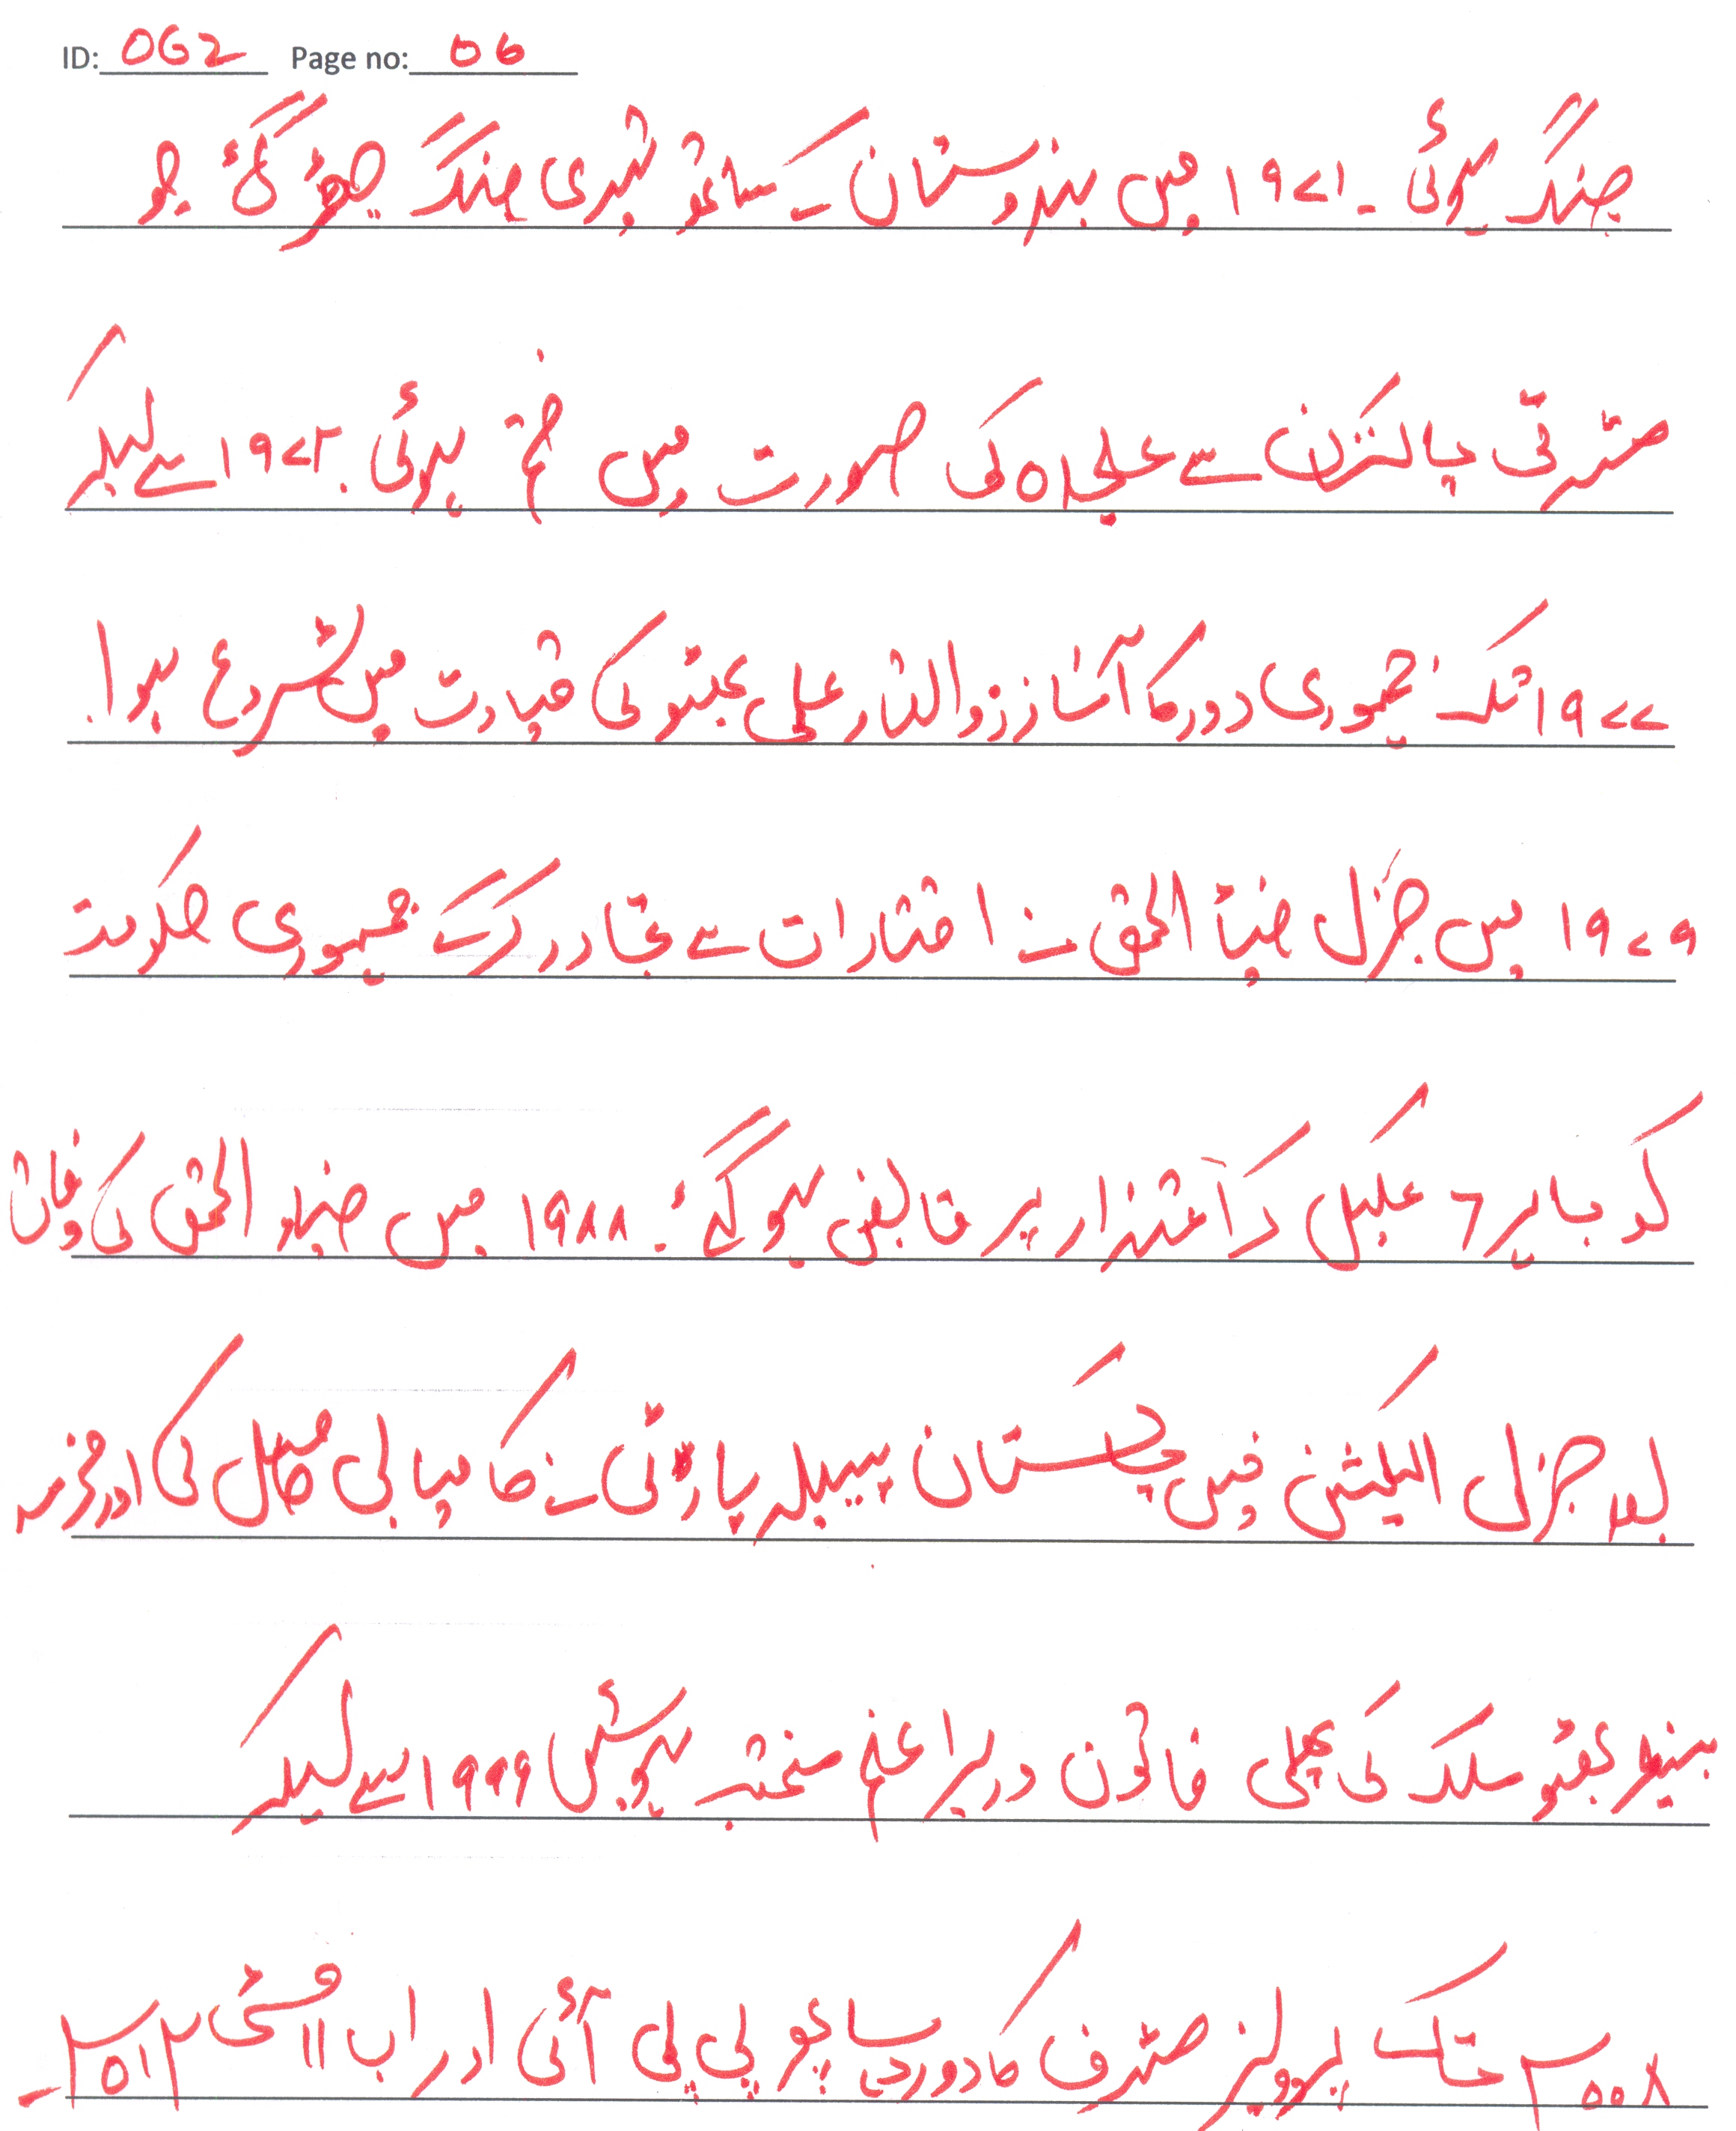 ID: 062 Page no: 06
جنگ ہوئی ۔ ۱۹۷۱ میں ہندوستان کے ساتھ تیسری جنگ چھڑ گئی جو
مشرقی پاکستان سے علیحدہ کی صورت میں ختم ہوئی ۔ ۱۹۷۲ سے لیکر
۱۹۷۷ تک جمہوری دور کا آغاز ذوالفقار علی بھٹو کی قیادت میں شروع ہوا ۔
۱۹۷۹ میں جنرل ضیا الحق نے اختیارات سے تجاوز کرکے جمہوری حکومت
کو باہر دھکیل کر اقتدار پر قابض ہوگئے ۔ ۱۹۸۸ میں ضیاء الحق کی وفات
بعد جنرل الیکشن میں پاکستان پیپلز پارٹی نے کامیابی حاصل کی اور محترمہ
بینظیر بھٹو ملک کی پہلی خاتون وزیراعظم منتخب ہوئیں ۱۹۹۹ سے لیکر
۲۰۰۸ تک پرویز مشرف کا دور رہا پھر پی پی آئی اور اب ۱۱ مئی ۲۰۱۳ ۔